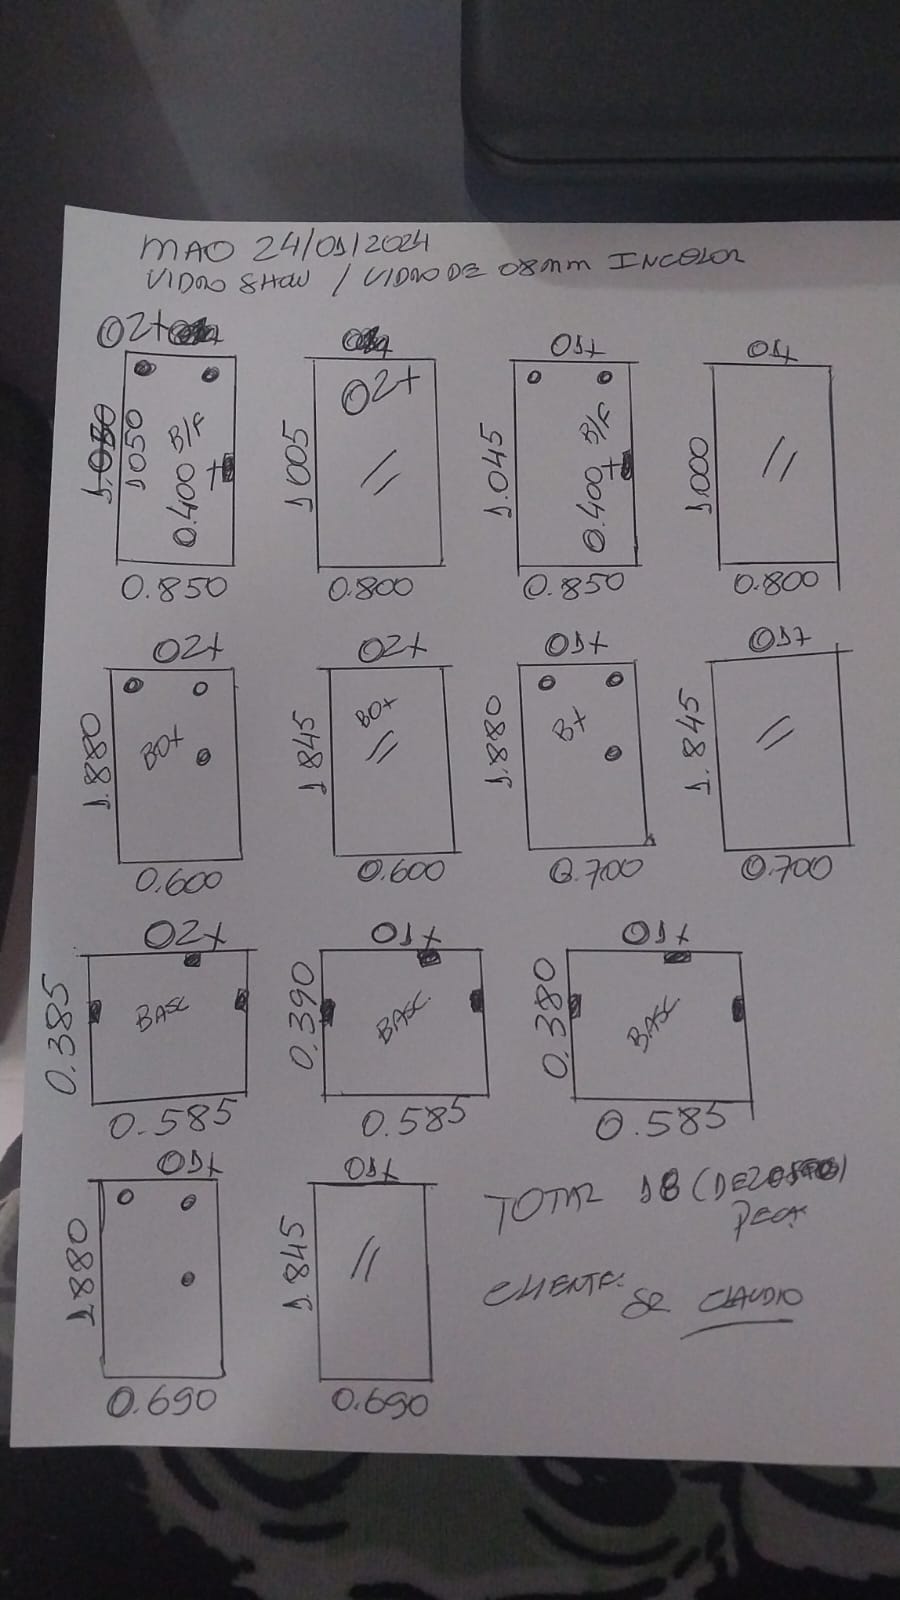 MAO 24/01/2024
VIDRO SHOW / VIDRO DE 08mm INCOLOR
02x
1.050
1050
B/F
0.400
0.850
02x
1005
0.800
01x
1.045
B/F
0.400
0.850
01x
1.000
0.800
02x
1.880
BOX
0.600
02x
1.845
BOX
0.600
01x
1.880
BX
0.700
01x
1.845
0.700
02x
0.385
BASC
0.585
01x
0.390
BASC.
0.585
01x
0.380
BASC
0.585
01x
1.880
0.690
01x
1.845
0.690
TOTAL 18 (DEZOITO)
PEÇAS
CLIENTE:
SR CLAUDIO